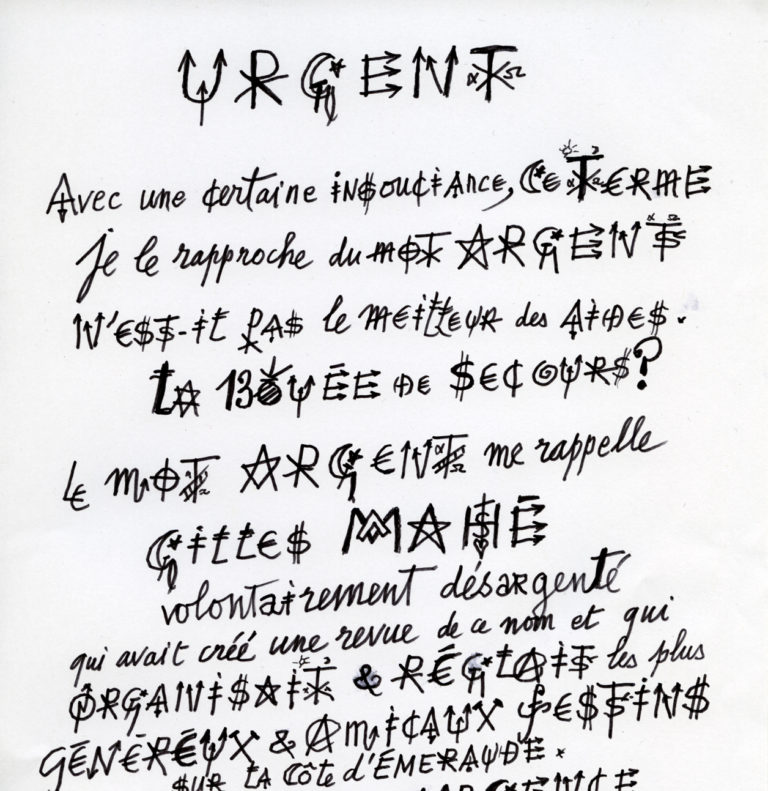 URGENT
Avec une certaine iNSouCiAnce, CE TERME
je le rapproche du MOT ARGENT
N'EST-il PAS le MEiLLEUR des AiDES.
LA BOUÉE DE SECOURS?
LE MOT ARGENT me rappelle
GiLLES MAHÉ
volontairement désargenté
qui avait créé une revue de ce nom et qui
ORGANiSAiT & RÉGLAiT les plus
GÉNÉREUX & AMiCAUX FESTiNS
SUR LA Côte d'ÉMERAUDE.